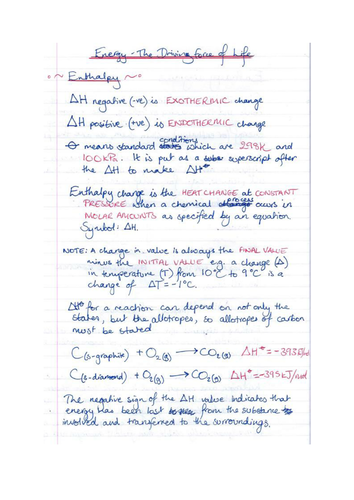 Energy - The Driving Force of Life
~ Enthalpy ~
ΔH negative (-ve) is EXOTHERMIC change
ΔH positive (+ve) is ENDOTHERMIC change
conditions
⦵ means standard states which are 298K and
100kPa. It is put as a superscript after
the ΔH to make ΔH⦵
Enthalpy change is the HEAT CHANGE at CONSTANT
process
PRESSURE when a chemical change occurs in
MOLAR AMOUNTS as specified by an equation
Symbol: ΔH.
NOTE: A change in value is always the FINAL VALUE
minus the INITIAL VALUE e.g. a change (Δ)
in temperature (T) from 10°C to 9°C is a
change of ΔT = -1°C.
ΔH⦵ for a reaction can depend on not only the
states, but the allotropes, so allotropes of carbon
must be stated
C(s-graphite) + O₂(g) → CO₂(g) ΔH⦵ = -393kJ/mol
C(s-diamond) + O₂(g) → CO₂(g) ΔH⦵ = -395kJ/mol
The negative sign of the ΔH value indicates that
energy has been lost from the substance
involved and transferred to the surroundings.